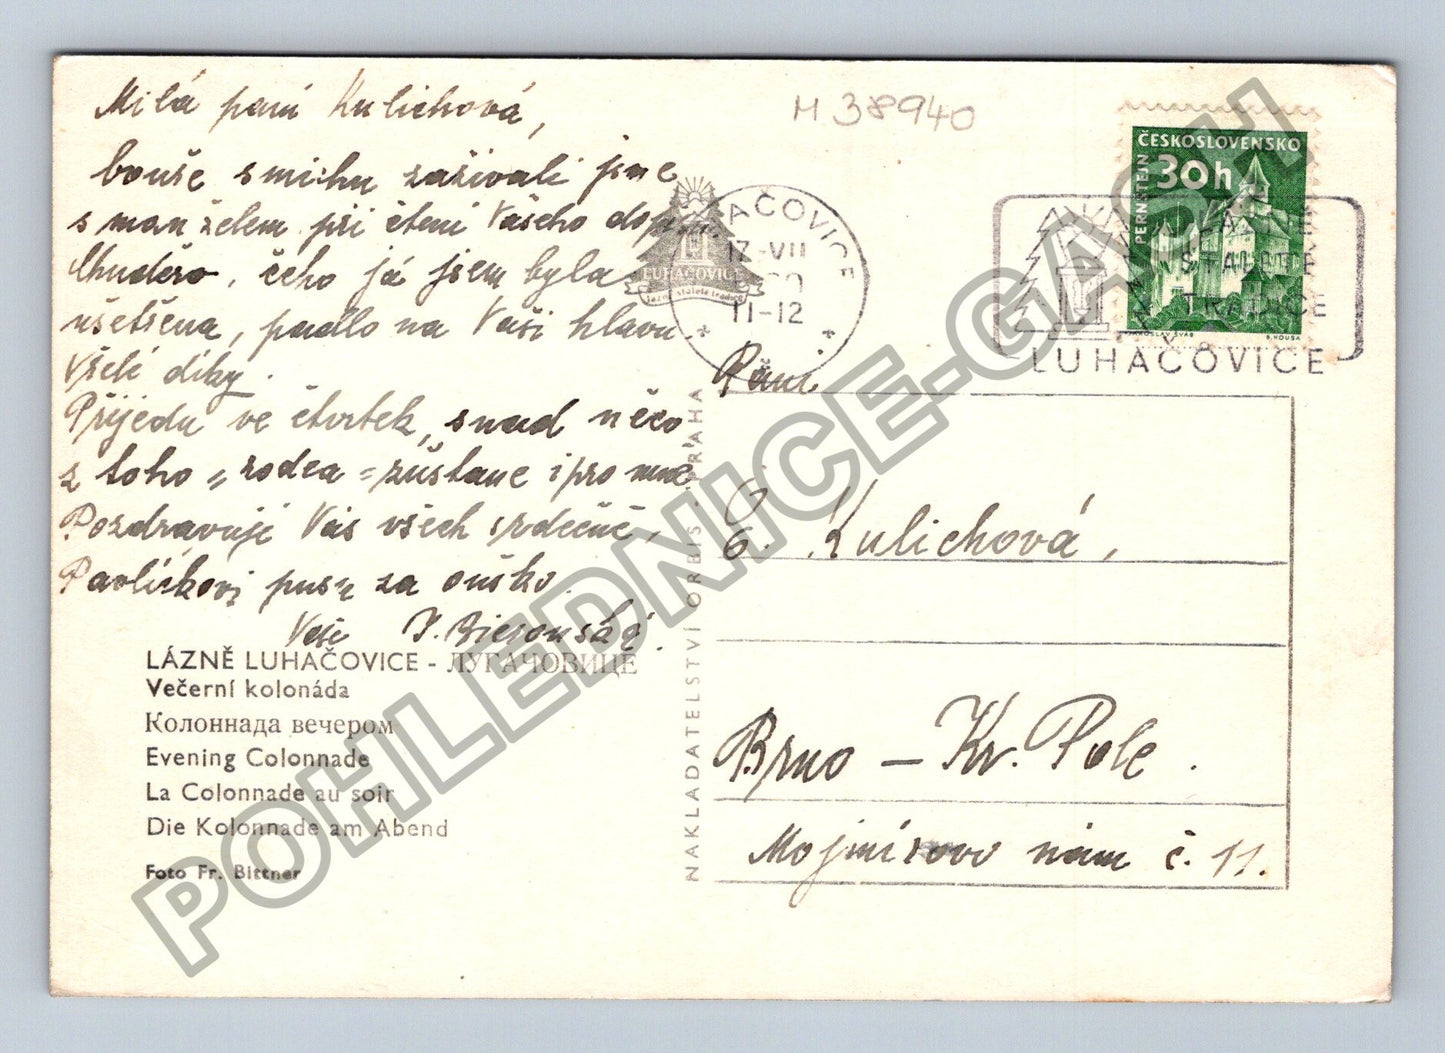 Milá paní Kulichová,
bouře smíchu zažívali jsme
s manželem při čtení Vašeho dopisu.
Chudero, čeho já jsem byla
ušetřena, padlo na Vaši hlavu.
Vřelé díky.
Přijedu ve čtvrtek, snad něco
z toho „rodea" zůstane i pro mne
Pozdravuji Vás všech srdečně,
Pavlíčkovi pusu za ouško.
Vaše
LÁZNĚ LUHAČOVICE - ЛУГАЧОВИЦЕ
Večerní kolonáda
Колоннада вечером
Evening Colonnade
La Colonnade au soir
Die Kolonnade am Abend
Foto Fr. Bittner
NAKLADATELSTVÍ ORBIS, PRAHA
M 38940
LUHAČOVICE
Lázně stoleté tradice
AČOVICE
17.-VII
11-12
ČESKOSLOVENSKO
30h
PERNŠTEJN
JAROSLAV ŠVÁB
B. HOUSA
LÁZNĚ
STALETÉ
TRADICE
LUHAČOVICE
Paní
Kulichová,
Brno - Kr. Pole.
Mojmírovo nám č. 11.
POHLEDNICE-GASH